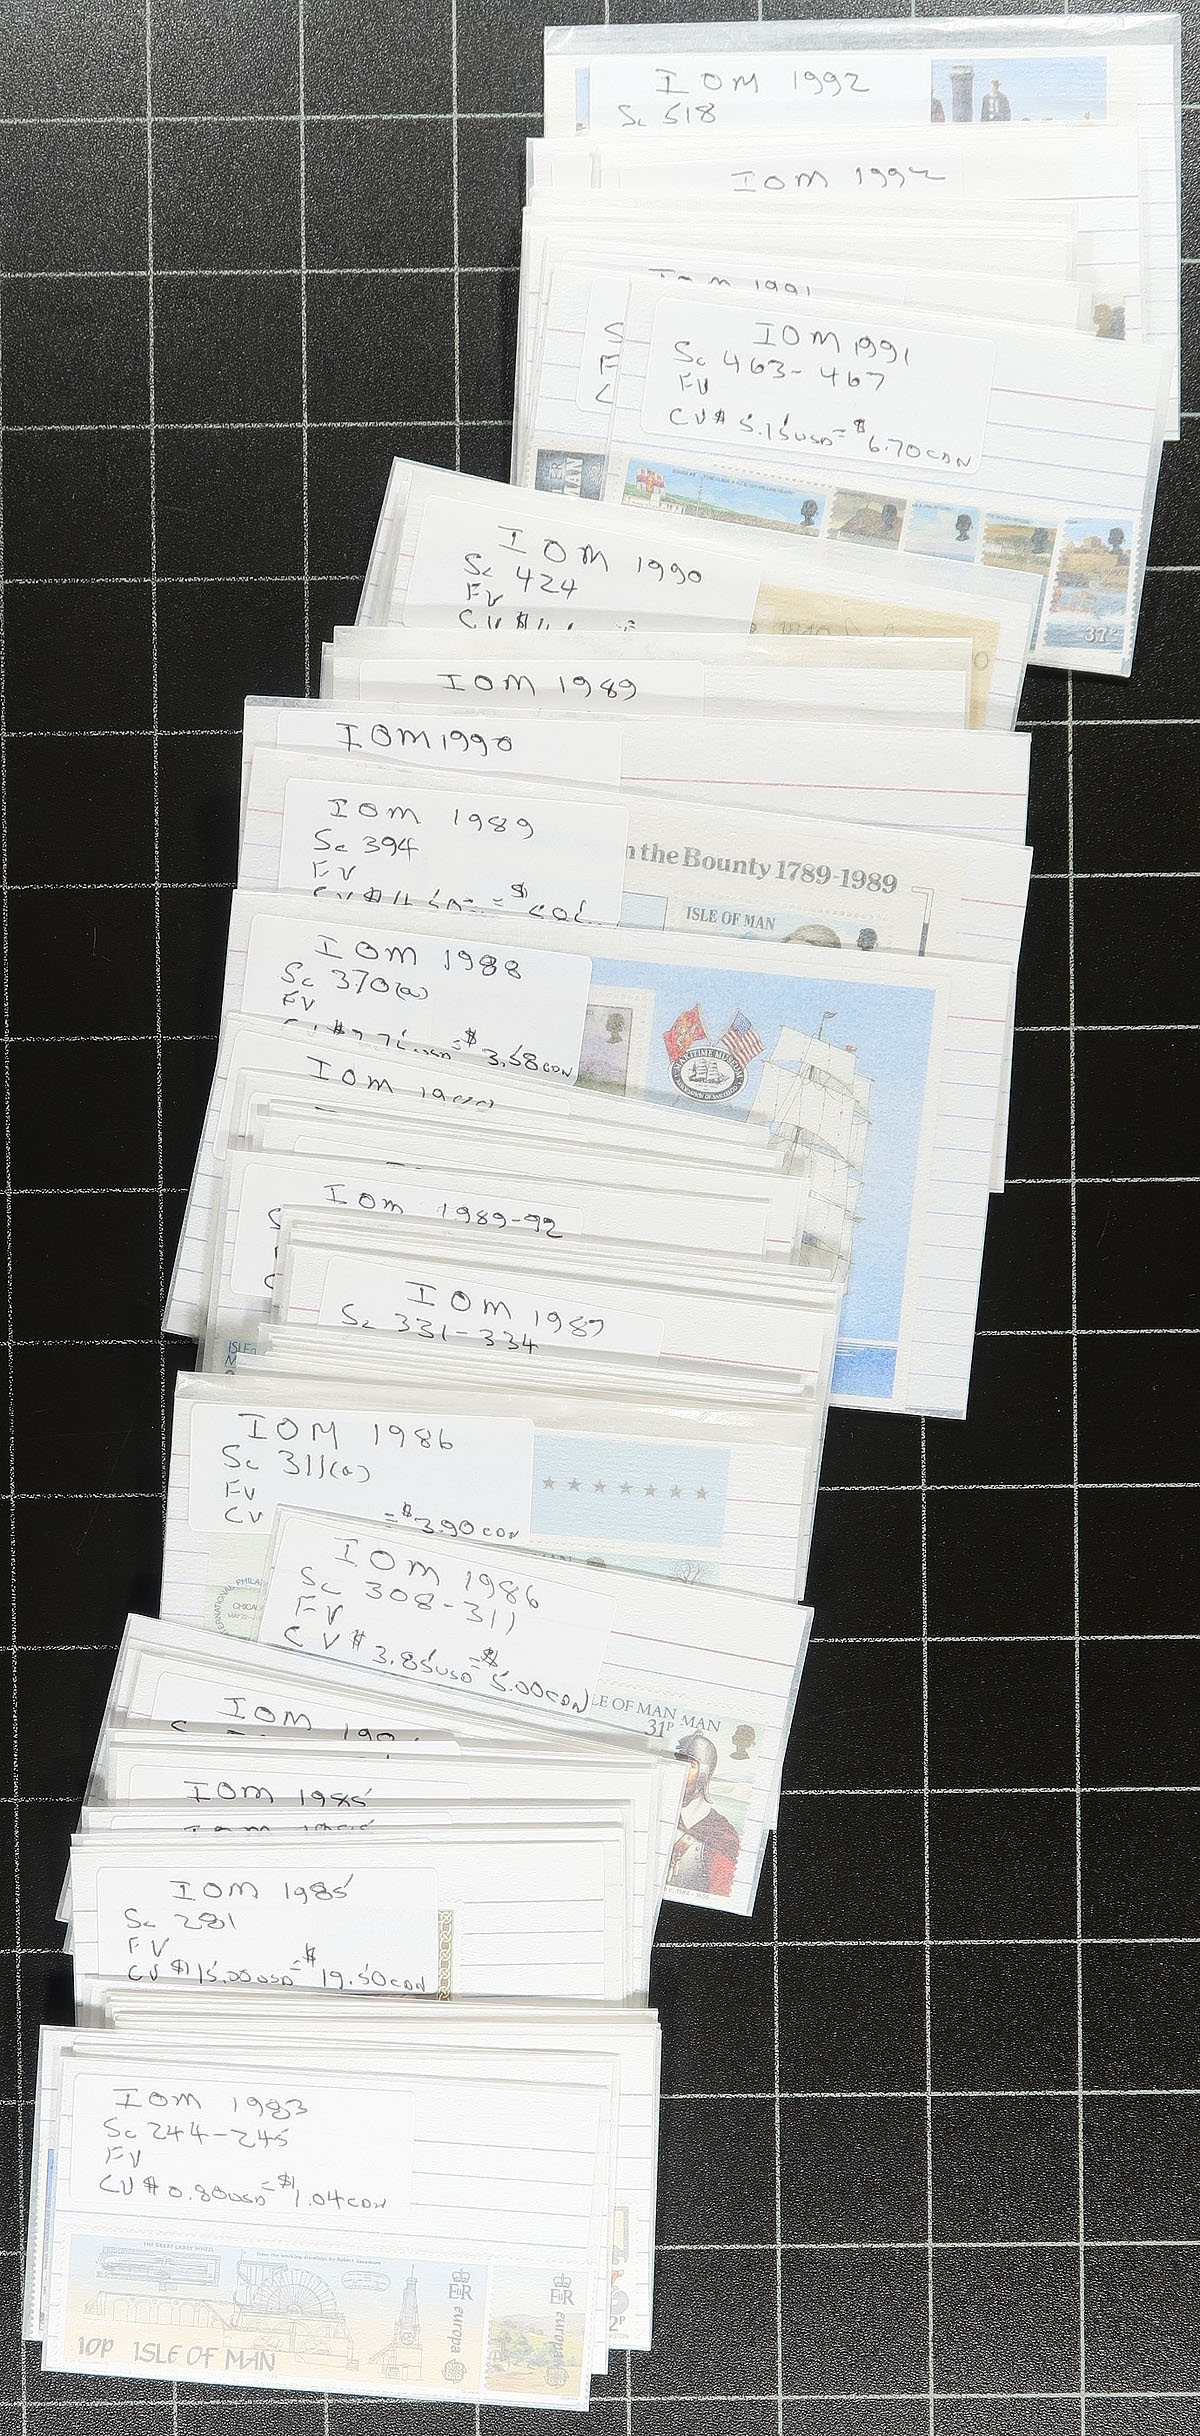 IOM 1992
Sc 518
IOM 1992
IOM 1991
IOM 1991
Sc 463-467
FV
CV $5.15USD=$6.70CDN
MAN
37P
IOM 1990
Sc 424
FV
CV
IOM 1989
IOM 1990
IOM 1989
Sc 394
FV
the Bounty 1789-1989
ISLE OF MAN
IOM 1988
Sc 370(a)
FV
=$3.58CDN
MARITIME MUSEUM
IOM
IOM 1989-92
IOM 1987
Sc 331-334
IOM 1986
Sc 311(a)
FV
CV =$3.90CDN
IOM 1986
Sc 308-311
FV
CV $3.85USD=$5.00CDN
LE OF MAN MAN
31P
IOM
IOM 1985
IOM 1985
Sc 281
FV
CV $15.00USD=$19.50CDN
IOM 1983
Sc 244-245
FV
CV $0.80USD=$1.04CDN
THE GREAT LAXEY WHEEL
from the working drawings by Robert Casement
europa
europa
10P ISLE OF MAN
2P